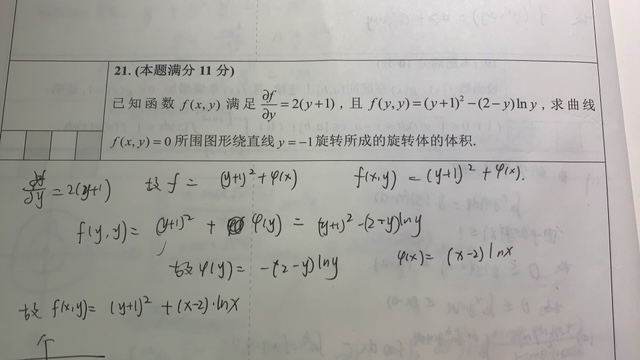 21. (本题满分 11 分)
已知函数 f(x,y) 满足 ∂f/∂y = 2(y+1)，且 f(y,y) = (y+1)² − (2−y)ln y，求曲线
f(x,y) = 0 所围图形绕直线 y = −1 旋转所成的旋转体的体积.
∂f/∂y = 2(y+1) 故 f = (y+1)² + φ(x) f(x,y) = (y+1)² + φ(x).
f(y,y) = (y+1)² + φ(y) = (y+1)² − (2−y)ln y
故 φ(y) = −(2−y) ln y φ(x) = (x−2) ln x
故 f(x,y) = (y+1)² + (x−2)·ln x